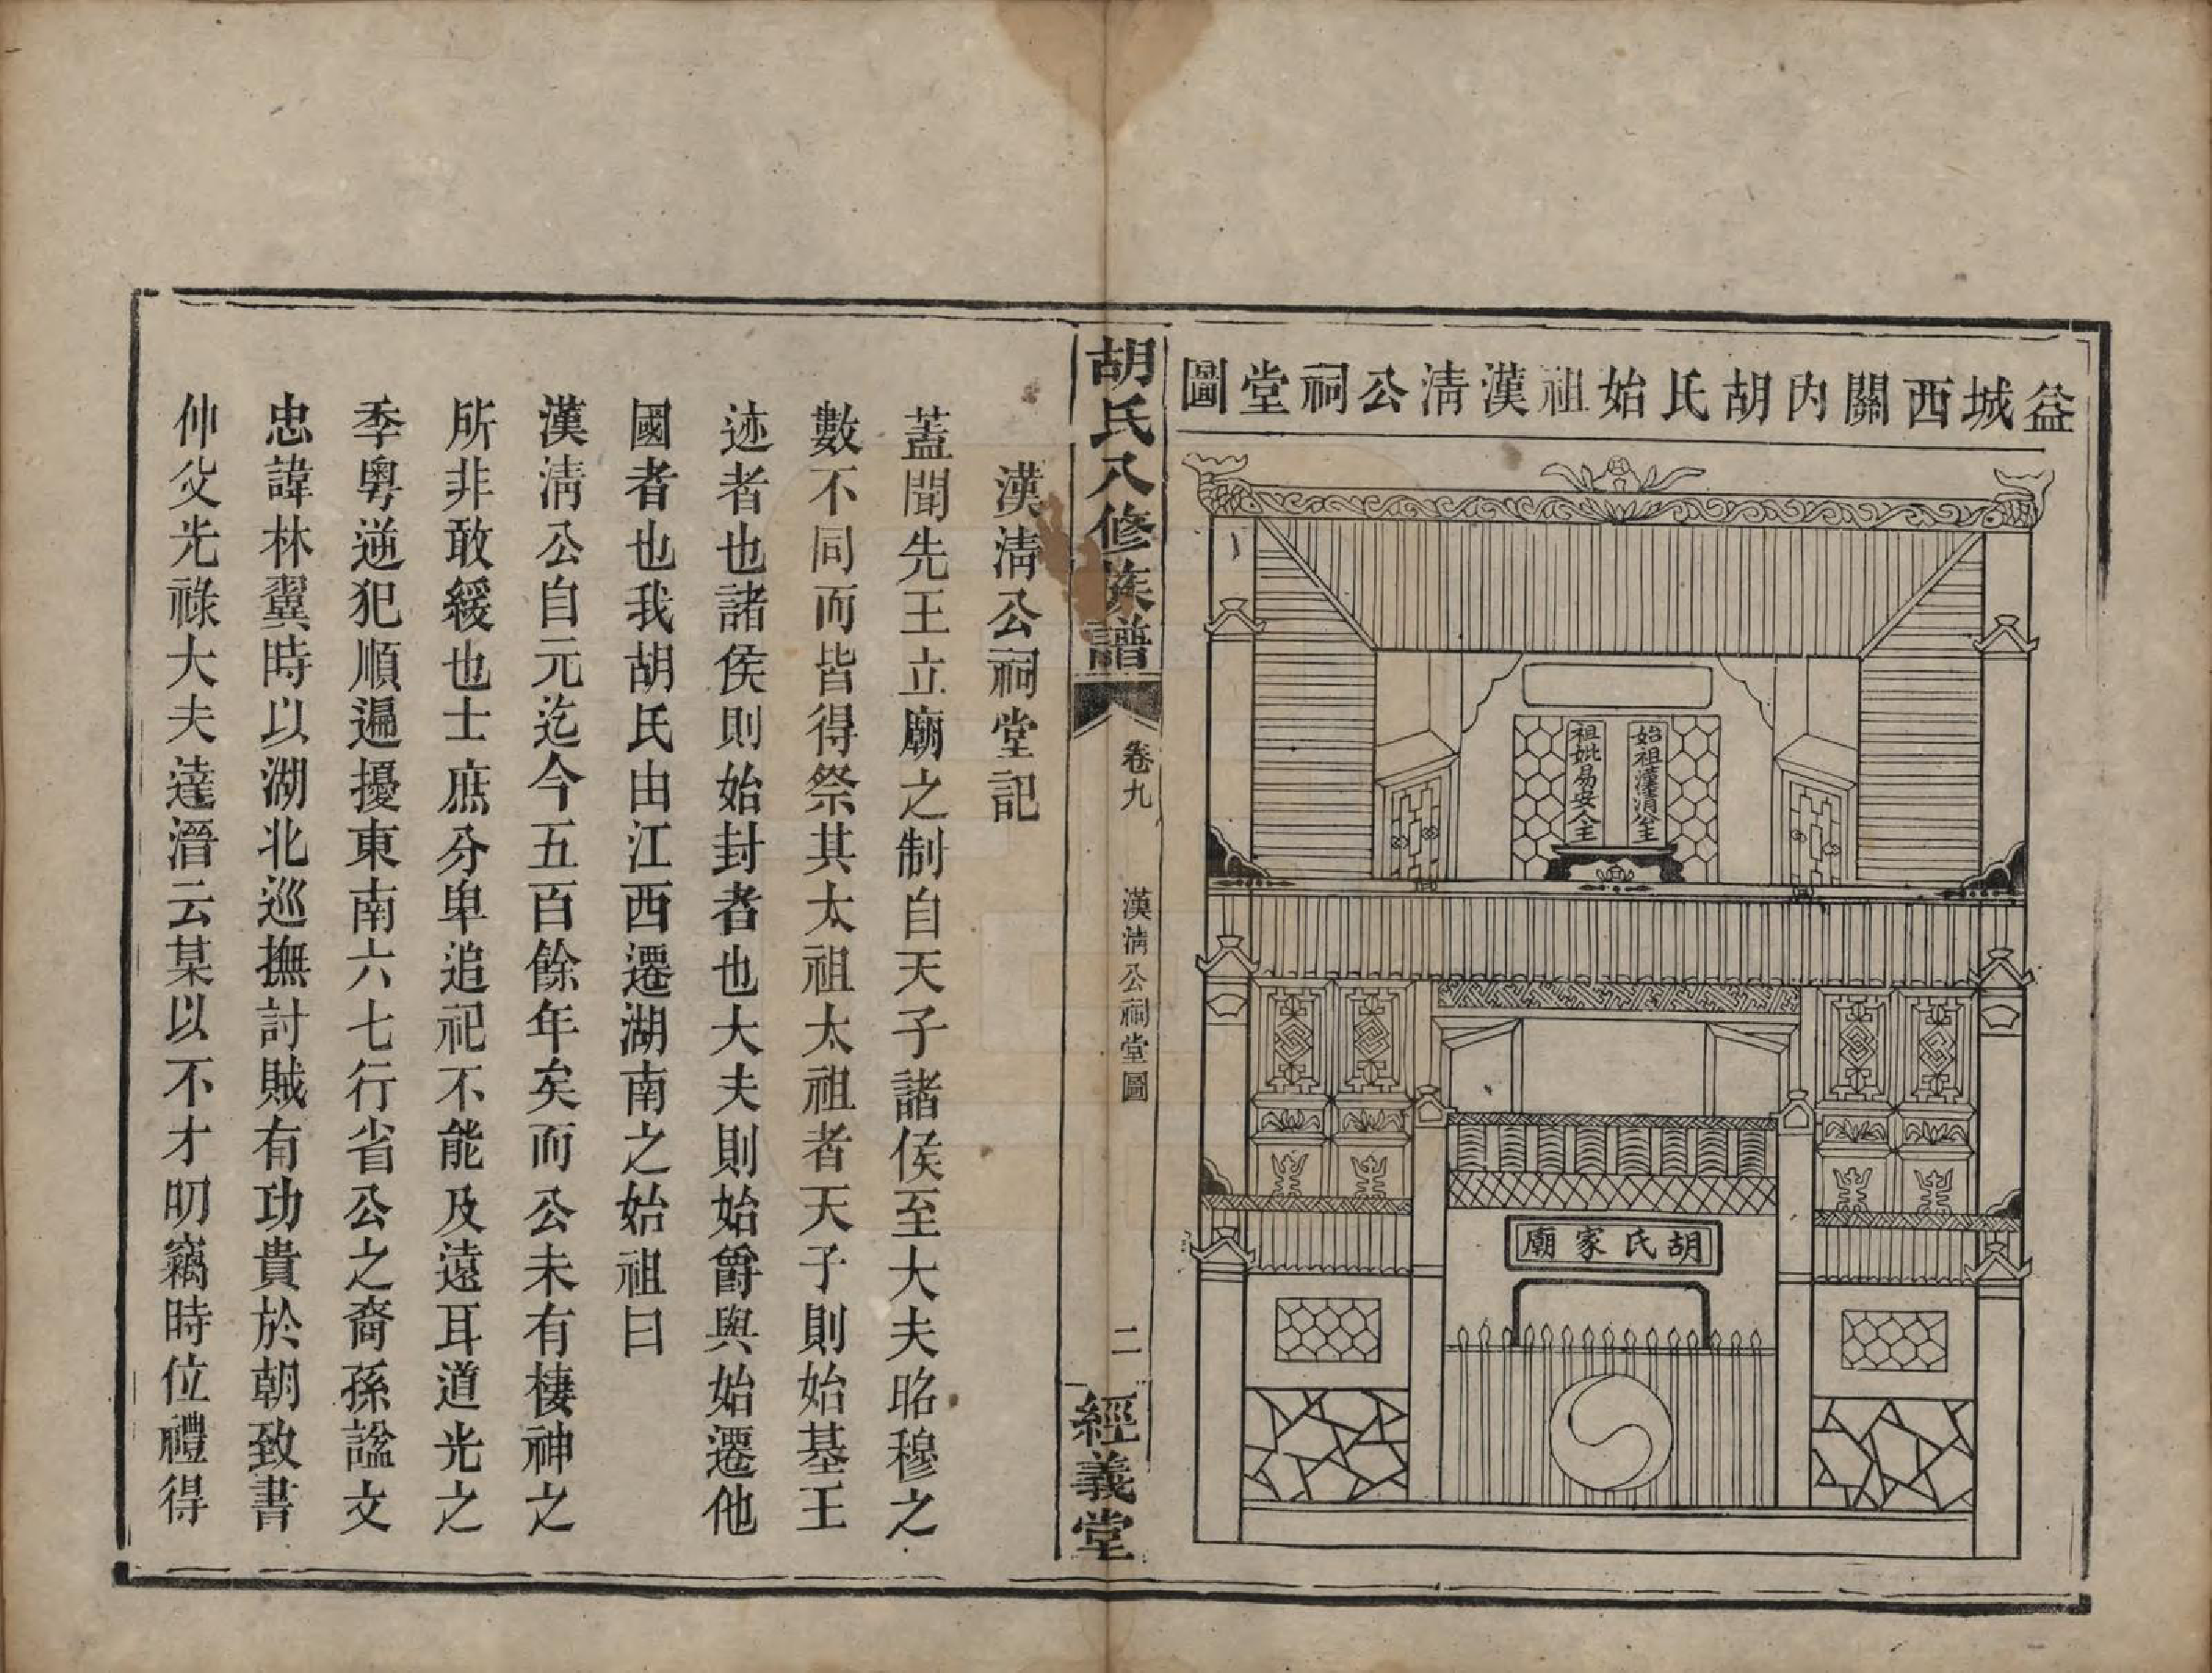 益城西關內胡氏始祖漢清公祠堂圖
始祖漢清公主
祖妣易安人主
胡氏家廟
胡氏八修族譜
卷九
漢清公祠堂圖
二
經義堂
漢清公祠堂記
蓋聞先王立廟之制自天子諸侯至大夫昭穆之
數不同而皆得祭其太祖太祖者天子則始基王
迹者也諸侯則始封者也大夫則始爵與始遷他
國者也我胡氏由江西遷湖南之始祖曰
漢清公自元迄今五百餘年矣而公未有棲神之
所非敢緩也士庶分卑追祀不能及遠耳道光之
季粵逆犯順遍擾東南六七行省公之裔孫諡文
忠諱林翼時以湖北巡撫討賊有功貴於朝致書
仲父光祿大夫達溍云某以不才叨竊時位禮得